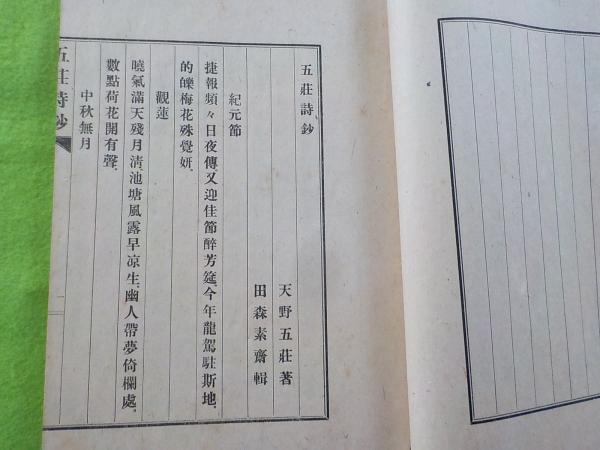 五莊詩鈔
天野五莊著
田森素齋輯
紀元節
捷報頻々日夜傳又迎佳節醉芳筵今年龍駕駐斯地
的皪梅花殊覺妍
觀蓮
曉氣滿天殘月清池塘風露早凉生幽人帶夢倚欄處
數點荷花開有聲
中秋無月
五莊詩鈔